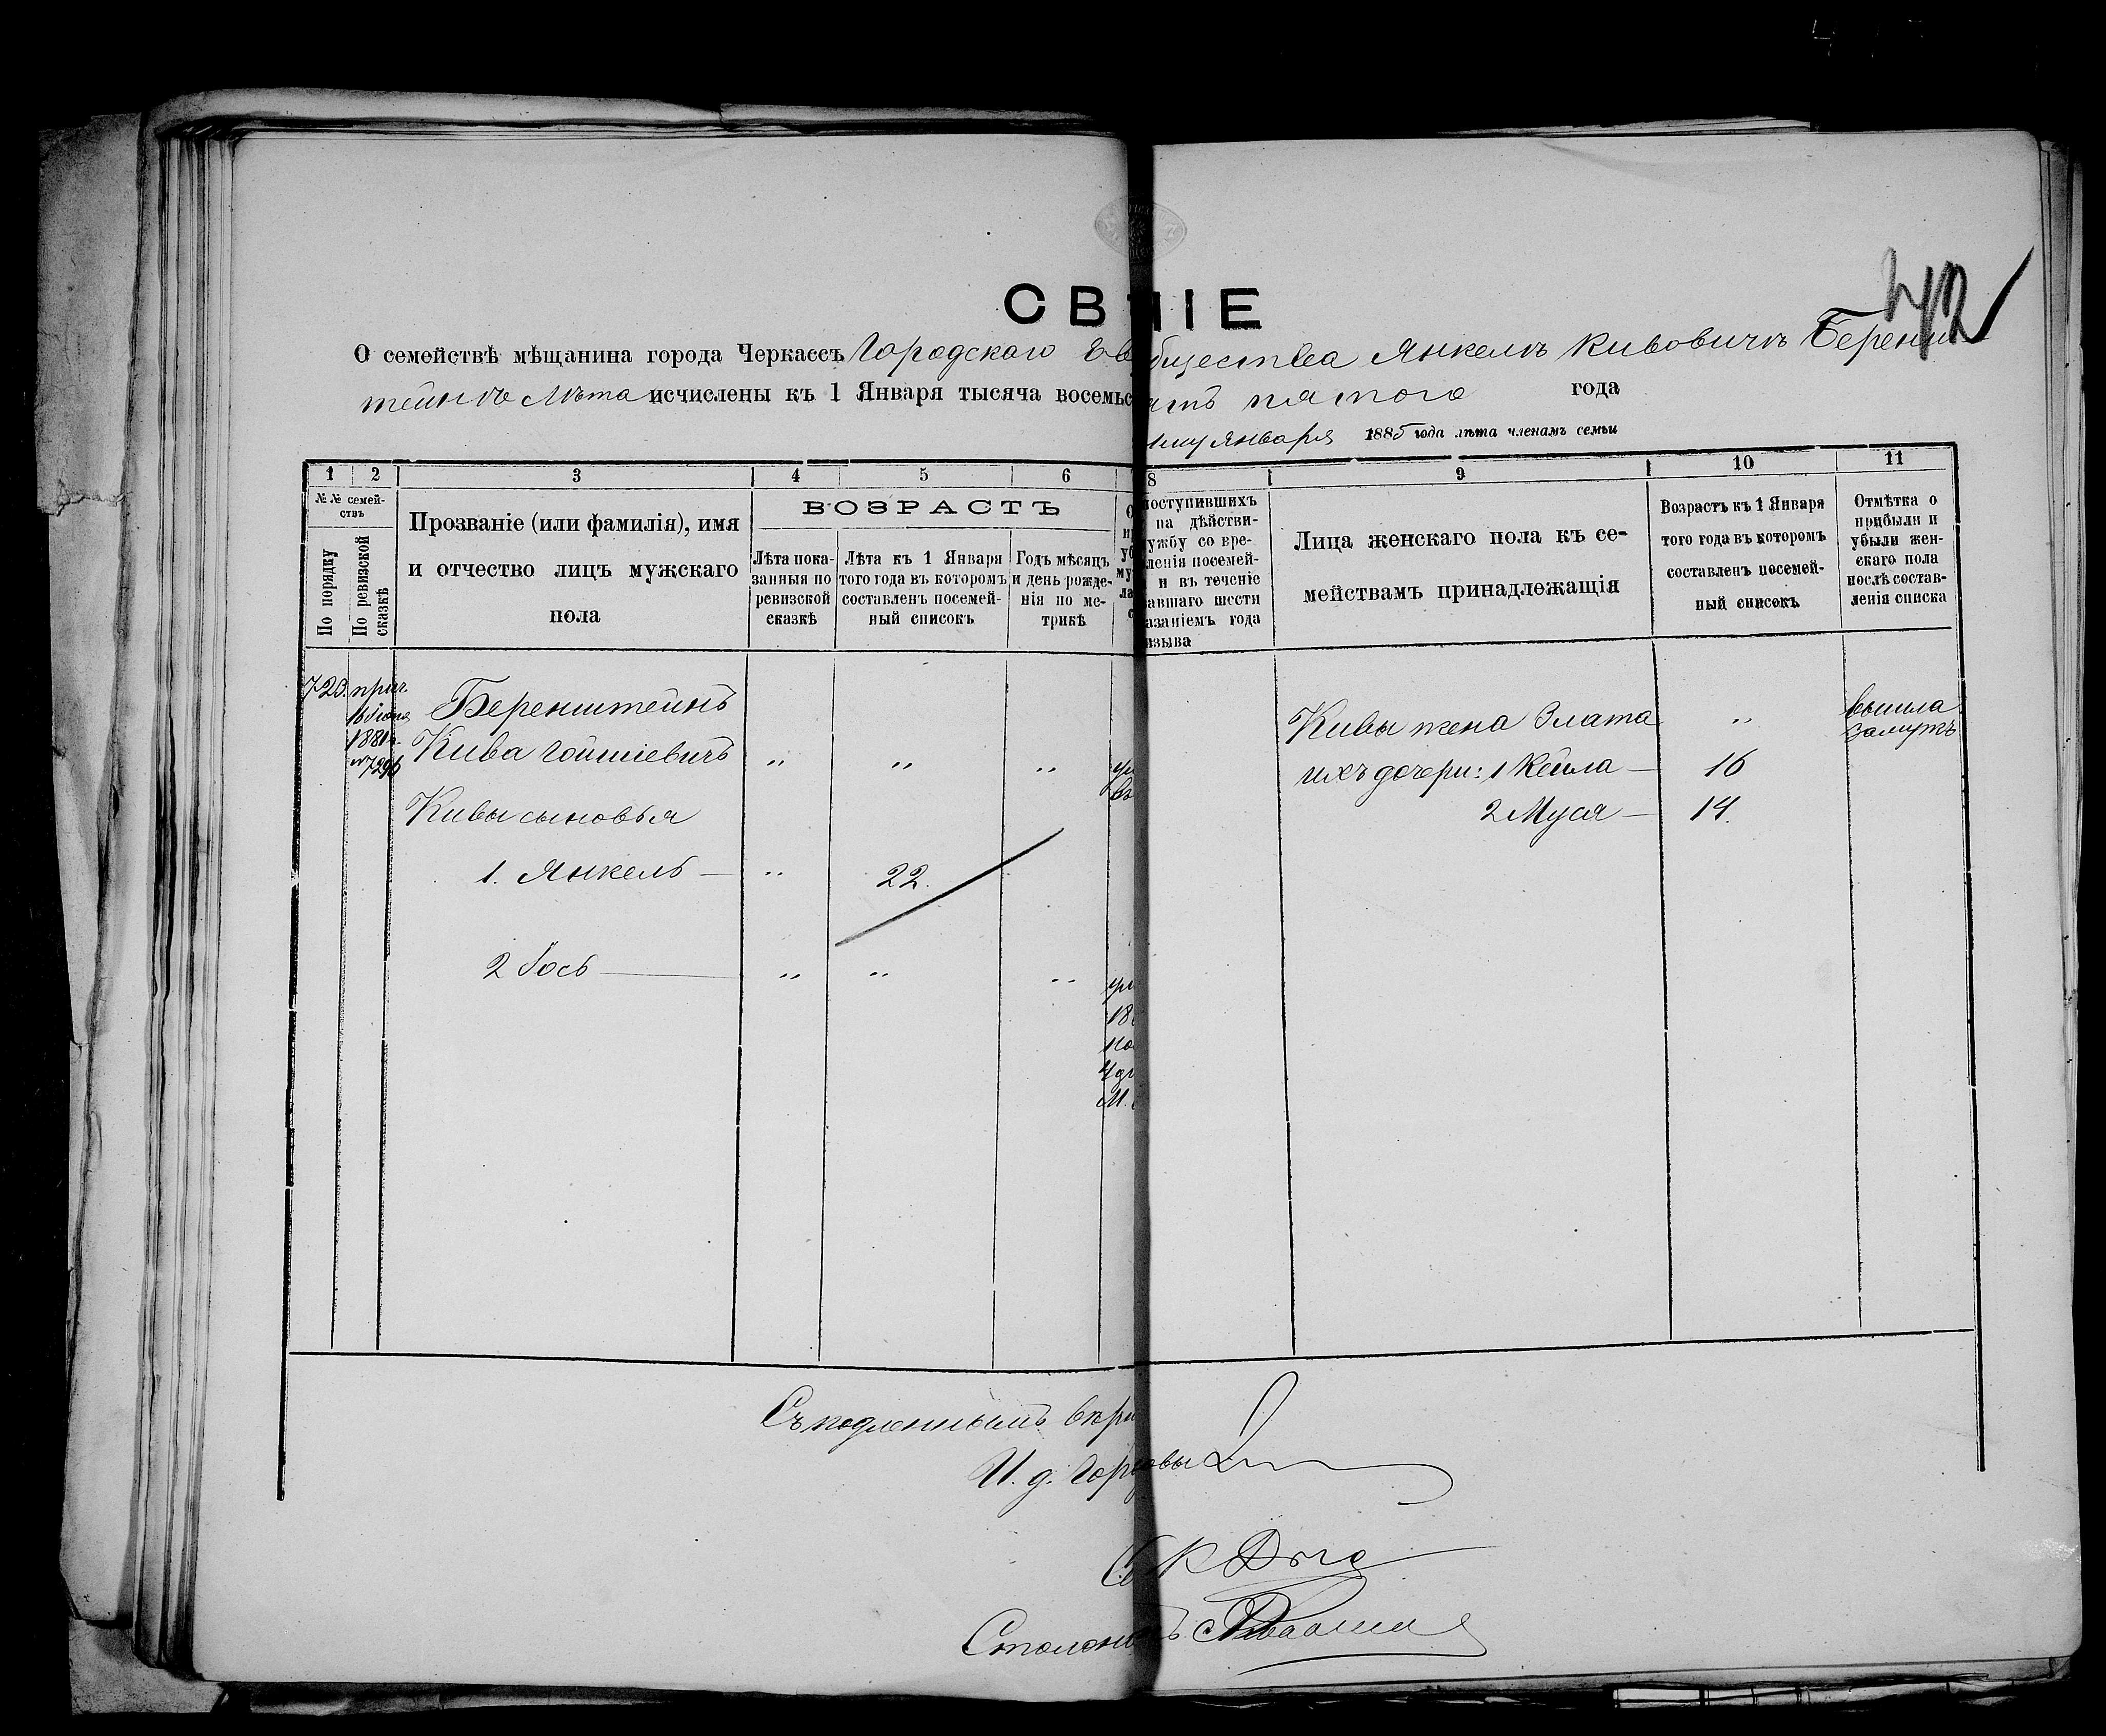 СВ НІЕ
О семействѣ мѣщанина города Черкассъ Городскаго Ев бщества Янкель Кивовичъ Беренш
тейнъ Лѣта исчислены къ 1 Января тысяча восемьс ятъ пятого года
1му Января 1885 года лѣта членамъ семьи
1 2 3 4 5 6 8 9 10 11
№№ семей-
ствъ
По порядку
По ревизской
сказкѣ
Прозваніе (или фамилія), имя
и отчество лицъ мужскаго
пола
ВОЗРАСТЪ
Лѣта пока-
занныя по
ревизской
сказкѣ
Лѣта къ 1 Января
того года въ которомъ
составленъ посемей-
ный списокъ
Годъ мѣсяцъ
и день рожде-
нія по ме-
трикѣ
поступившихъ
на дѣйстви-
ужбу со вре-
ленія посемей-
и въ теченіе
авшаго шести
азаніемъ года
изыва
Лица женскаго пола къ се-
мействамъ принадлежащія
Возрастъ къ 1 Января
того года въ которомъ
составленъ посемей-
ный списокъ
Отмѣтка о
прибыли и
убыли жен-
скаго пола
послѣ состав-
ленія списка
723. прич
16 Іюня
1881 г.
№ 7296
Беренштейнъ
Кива Гошіевичъ " " "
Кивы сыновья
1. Янкель — " 22.
2 Іось — " " "
Кивы жена Злата " вышла
замужъ
ихъ дочери: 1 Кейла — 16
2 Муся — 14.
Съ подленнымъ вѣр
И. д. Гор овы
Столон ъ